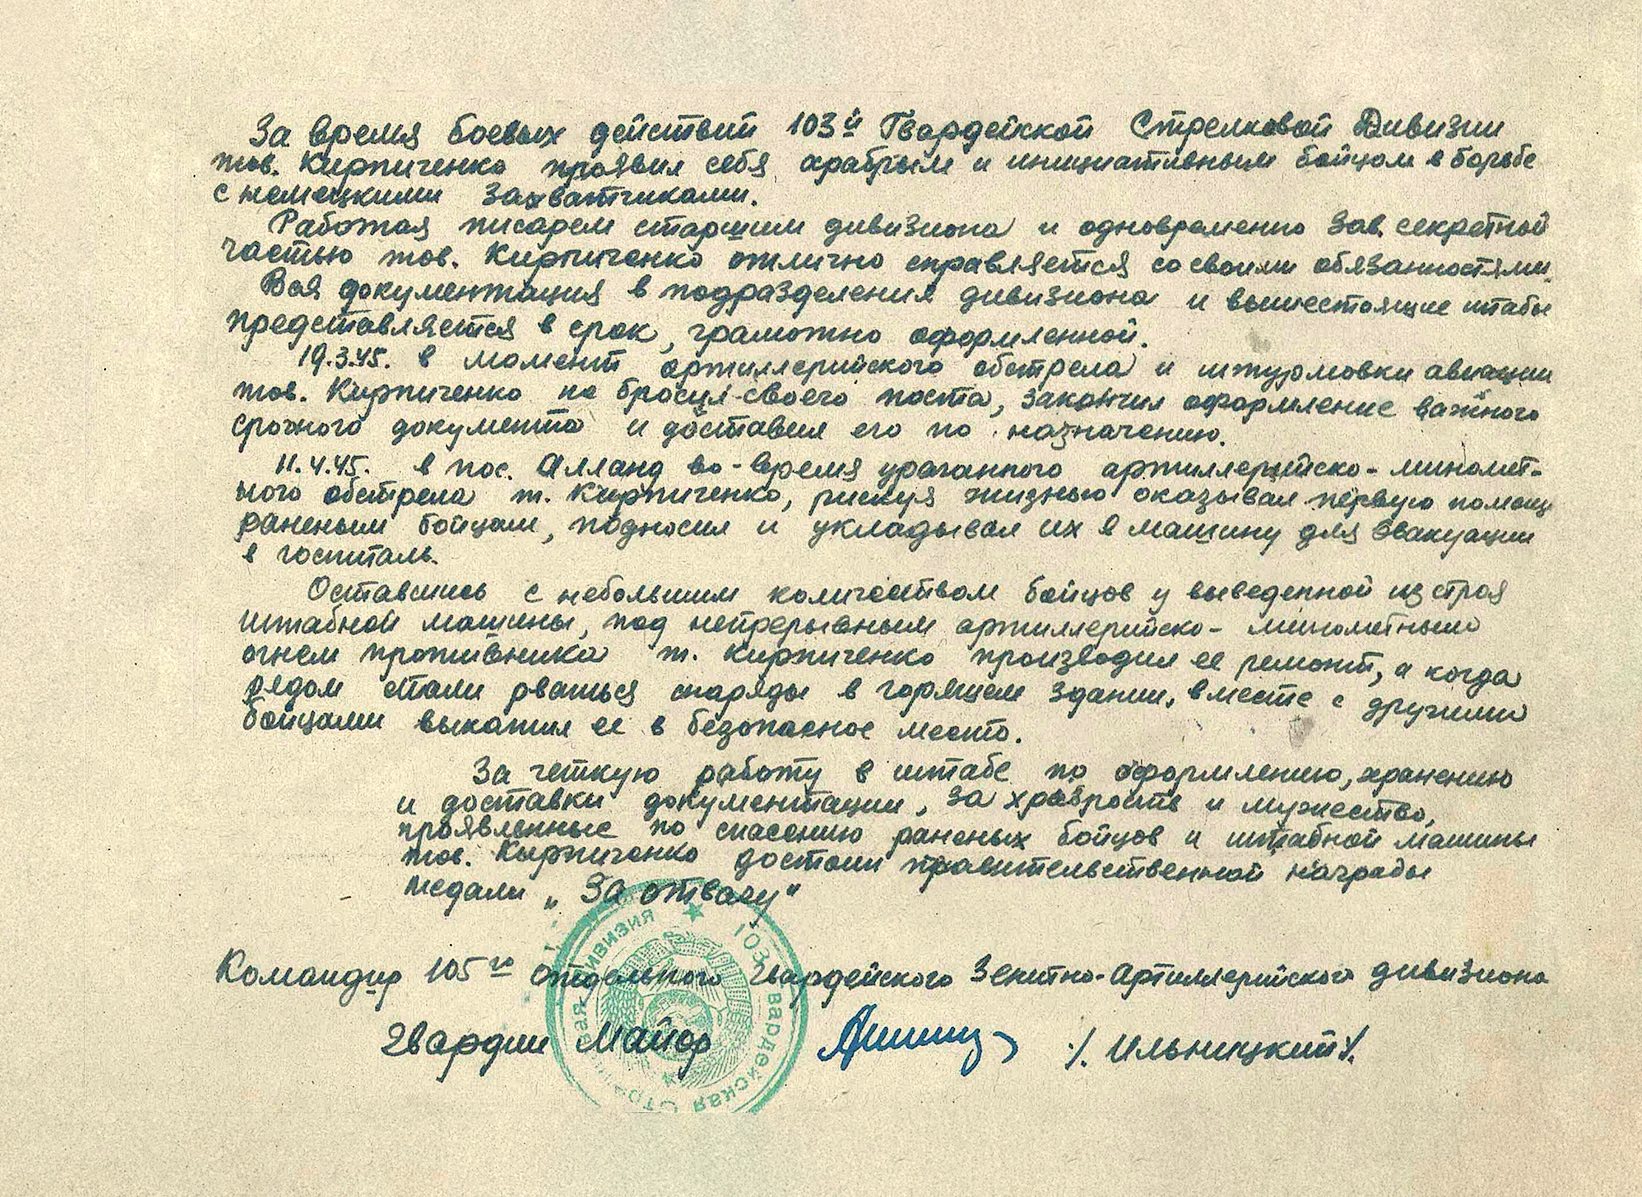 За время боевых действий 103й Гвардейской Стрелковой Дивизии
тов. Кирпиченко проявил себя храбрым и инициативным бойцом в борьбе
с немецкими захватчиками.
Работая писарем старшим дивизиона и одновременно Зав. секретной
частью тов. Кирпиченко отлично справляется со своими обязанностями.
Вся документация в подразделения дивизиона и вышестоящие штабы
представляется в срок, грамотно оформленной.
19.3.45. в момент артиллерийского обстрела и штурмовки авиации
тов. Кирпиченко не бросил своего поста, закончил оформление важного
срочного документа и доставил его по назначению.
11.4.45. в пос. Алланд во-время ураганного артиллерийско-миномет-
ного обстрела т. Кирпиченко, рискуя жизнью оказывал первую помощь
раненым бойцам, подносил и укладывал их в машину для эвакуации
в госпиталь.
Оставшись с небольшим количеством бойцов у выведенной из строя
штабной машины, под непрерывным артиллерийско-минометным
огнем противника т. Кирпиченко производил ее ремонт, а когда
рядом стали рваться снаряды в горящем здании, вместе с другими
бойцами выкатил ее в безопасное место.
За четкую работу в штабе по оформлению, хранению
и доставки документации, за храбрость и мужество,
проявленные по спасению раненых бойцов и штабной машины
тов. Кирпиченко достоин правительственной награды
медали „За отвагу"
Командир 105го отдельного Гвардейского Зенитно-Артиллерийского дивизиона
Гвардии Майор /. Ильницкий /.
103 Гвардейская Стр дивизия